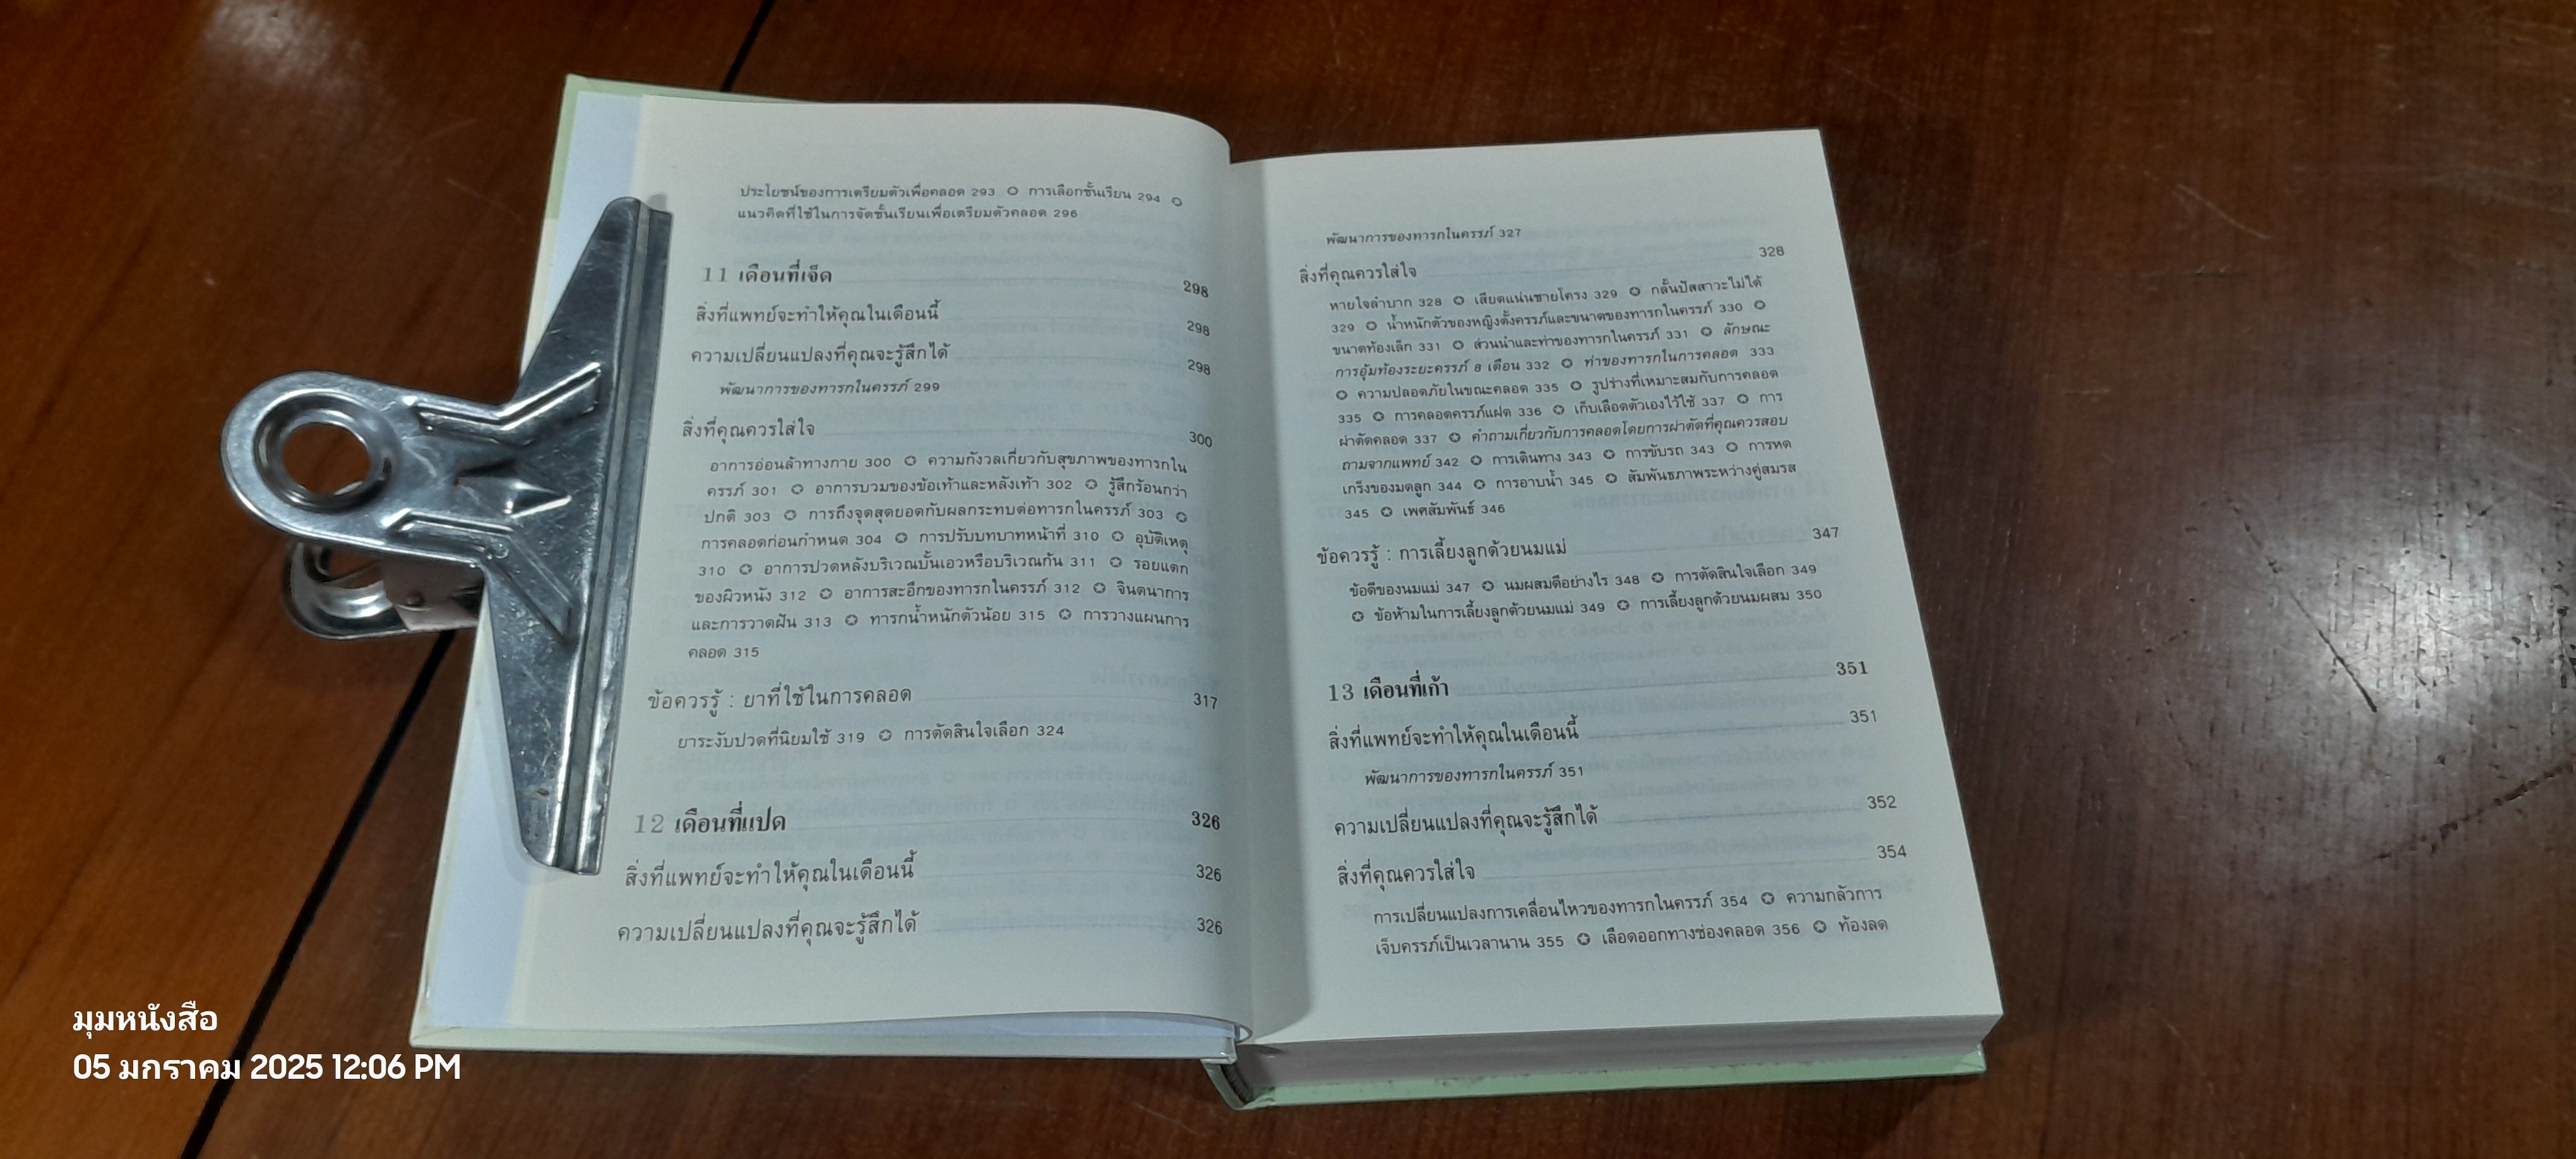 ประโยชน์ของการเตรียมตัวเพื่อคลอด 293 ✪ การเลือกชั้นเรียน 294 ✪
แนวคิดที่ใช้ในการจัดชั้นเรียนเพื่อเตรียมตัวคลอด 296
11 เดือนที่เจ็ด 298
สิ่งที่แพทย์จะทำให้คุณในเดือนนี้ 298
ความเปลี่ยนแปลงที่คุณจะรู้สึกได้ 298
พัฒนาการของทารกในครรภ์ 299
สิ่งที่คุณควรใส่ใจ 300
อาการอ่อนล้าทางกาย 300 ✪ ความกังวลเกี่ยวกับสุขภาพของทารกใน
ครรภ์ 301 ✪ อาการบวมของข้อเท้าและหลังเท้า 302 ✪ รู้สึกร้อนกว่า
ปกติ 303 ✪ การถึงจุดสุดยอดกับผลกระทบต่อทารกในครรภ์ 303 ✪
การคลอดก่อนกำหนด 304 ✪ การปรับบทบาทหน้าที่ 310 ✪ อุบัติเหตุ
310 ✪ อาการปวดหลังบริเวณบั้นเอวหรือบริเวณก้น 311 ✪ รอยแตก
ของผิวหนัง 312 ✪ อาการสะอึกของทารกในครรภ์ 312 ✪ จินตนาการ
และการวาดฝัน 313 ✪ ทารกน้ำหนักตัวน้อย 315 ✪ การวางแผนการ
คลอด 315
ข้อควรรู้ : ยาที่ใช้ในการคลอด 317
ยาระงับปวดที่นิยมใช้ 319 ✪ การตัดสินใจเลือก 324
12 เดือนที่แปด 326
สิ่งที่แพทย์จะทำให้คุณในเดือนนี้ 326
ความเปลี่ยนแปลงที่คุณจะรู้สึกได้ 326
พัฒนาการของทารกในครรภ์ 327
สิ่งที่คุณควรใส่ใจ 328
หายใจลำบาก 328 ✪ เสียดแน่นชายโครง 329 ✪ กลั้นปัสสาวะไม่ได้
329 ✪ น้ำหนักตัวของหญิงตั้งครรภ์และขนาดของทารกในครรภ์ 330 ✪
ขนาดท้องเล็ก 331 ✪ ส่วนนำและท่าของทารกในครรภ์ 331 ✪ ลักษณะ
การอุ้มท้องระยะครรภ์ 8 เดือน 332 ✪ ท่าของทารกในการคลอด 333
✪ ความปลอดภัยในขณะคลอด 335 ✪ รูปร่างที่เหมาะสมกับการคลอด
335 ✪ การคลอดครรภ์แฝด 336 ✪ เก็บเลือดตัวเองไว้ใช้ 337 ✪ การ
ผ่าตัดคลอด 337 ✪ คำถามเกี่ยวกับการคลอดโดยการผ่าตัดที่คุณควรสอบ
ถามจากแพทย์ 342 ✪ การเดินทาง 343 ✪ การขับรถ 343 ✪ การหด
เกร็งของมดลูก 344 ✪ การอาบน้ำ 345 ✪ สัมพันธภาพระหว่างคู่สมรส
345 ✪ เพศสัมพันธ์ 346
ข้อควรรู้ : การเลี้ยงลูกด้วยนมแม่ 347
ข้อดีของนมแม่ 347 ✪ นมผสมดีอย่างไร 348 ✪ การตัดสินใจเลือก 349
✪ ข้อห้ามในการเลี้ยงลูกด้วยนมแม่ 349 ✪ การเลี้ยงลูกด้วยนมผสม 350
13 เดือนที่เก้า 351
สิ่งที่แพทย์จะทำให้คุณในเดือนนี้ 351
พัฒนาการของทารกในครรภ์ 351
ความเปลี่ยนแปลงที่คุณจะรู้สึกได้ 352
สิ่งที่คุณควรใส่ใจ 354
การเปลี่ยนแปลงการเคลื่อนไหวของทารกในครรภ์ 354 ✪ ความกลัวการ
เจ็บครรภ์เป็นเวลานาน 355 ✪ เลือดออกทางช่องคลอด 356 ✪ ท้องลด
มุมหนังสือ
05 มกราคม 2025 12:06 PM